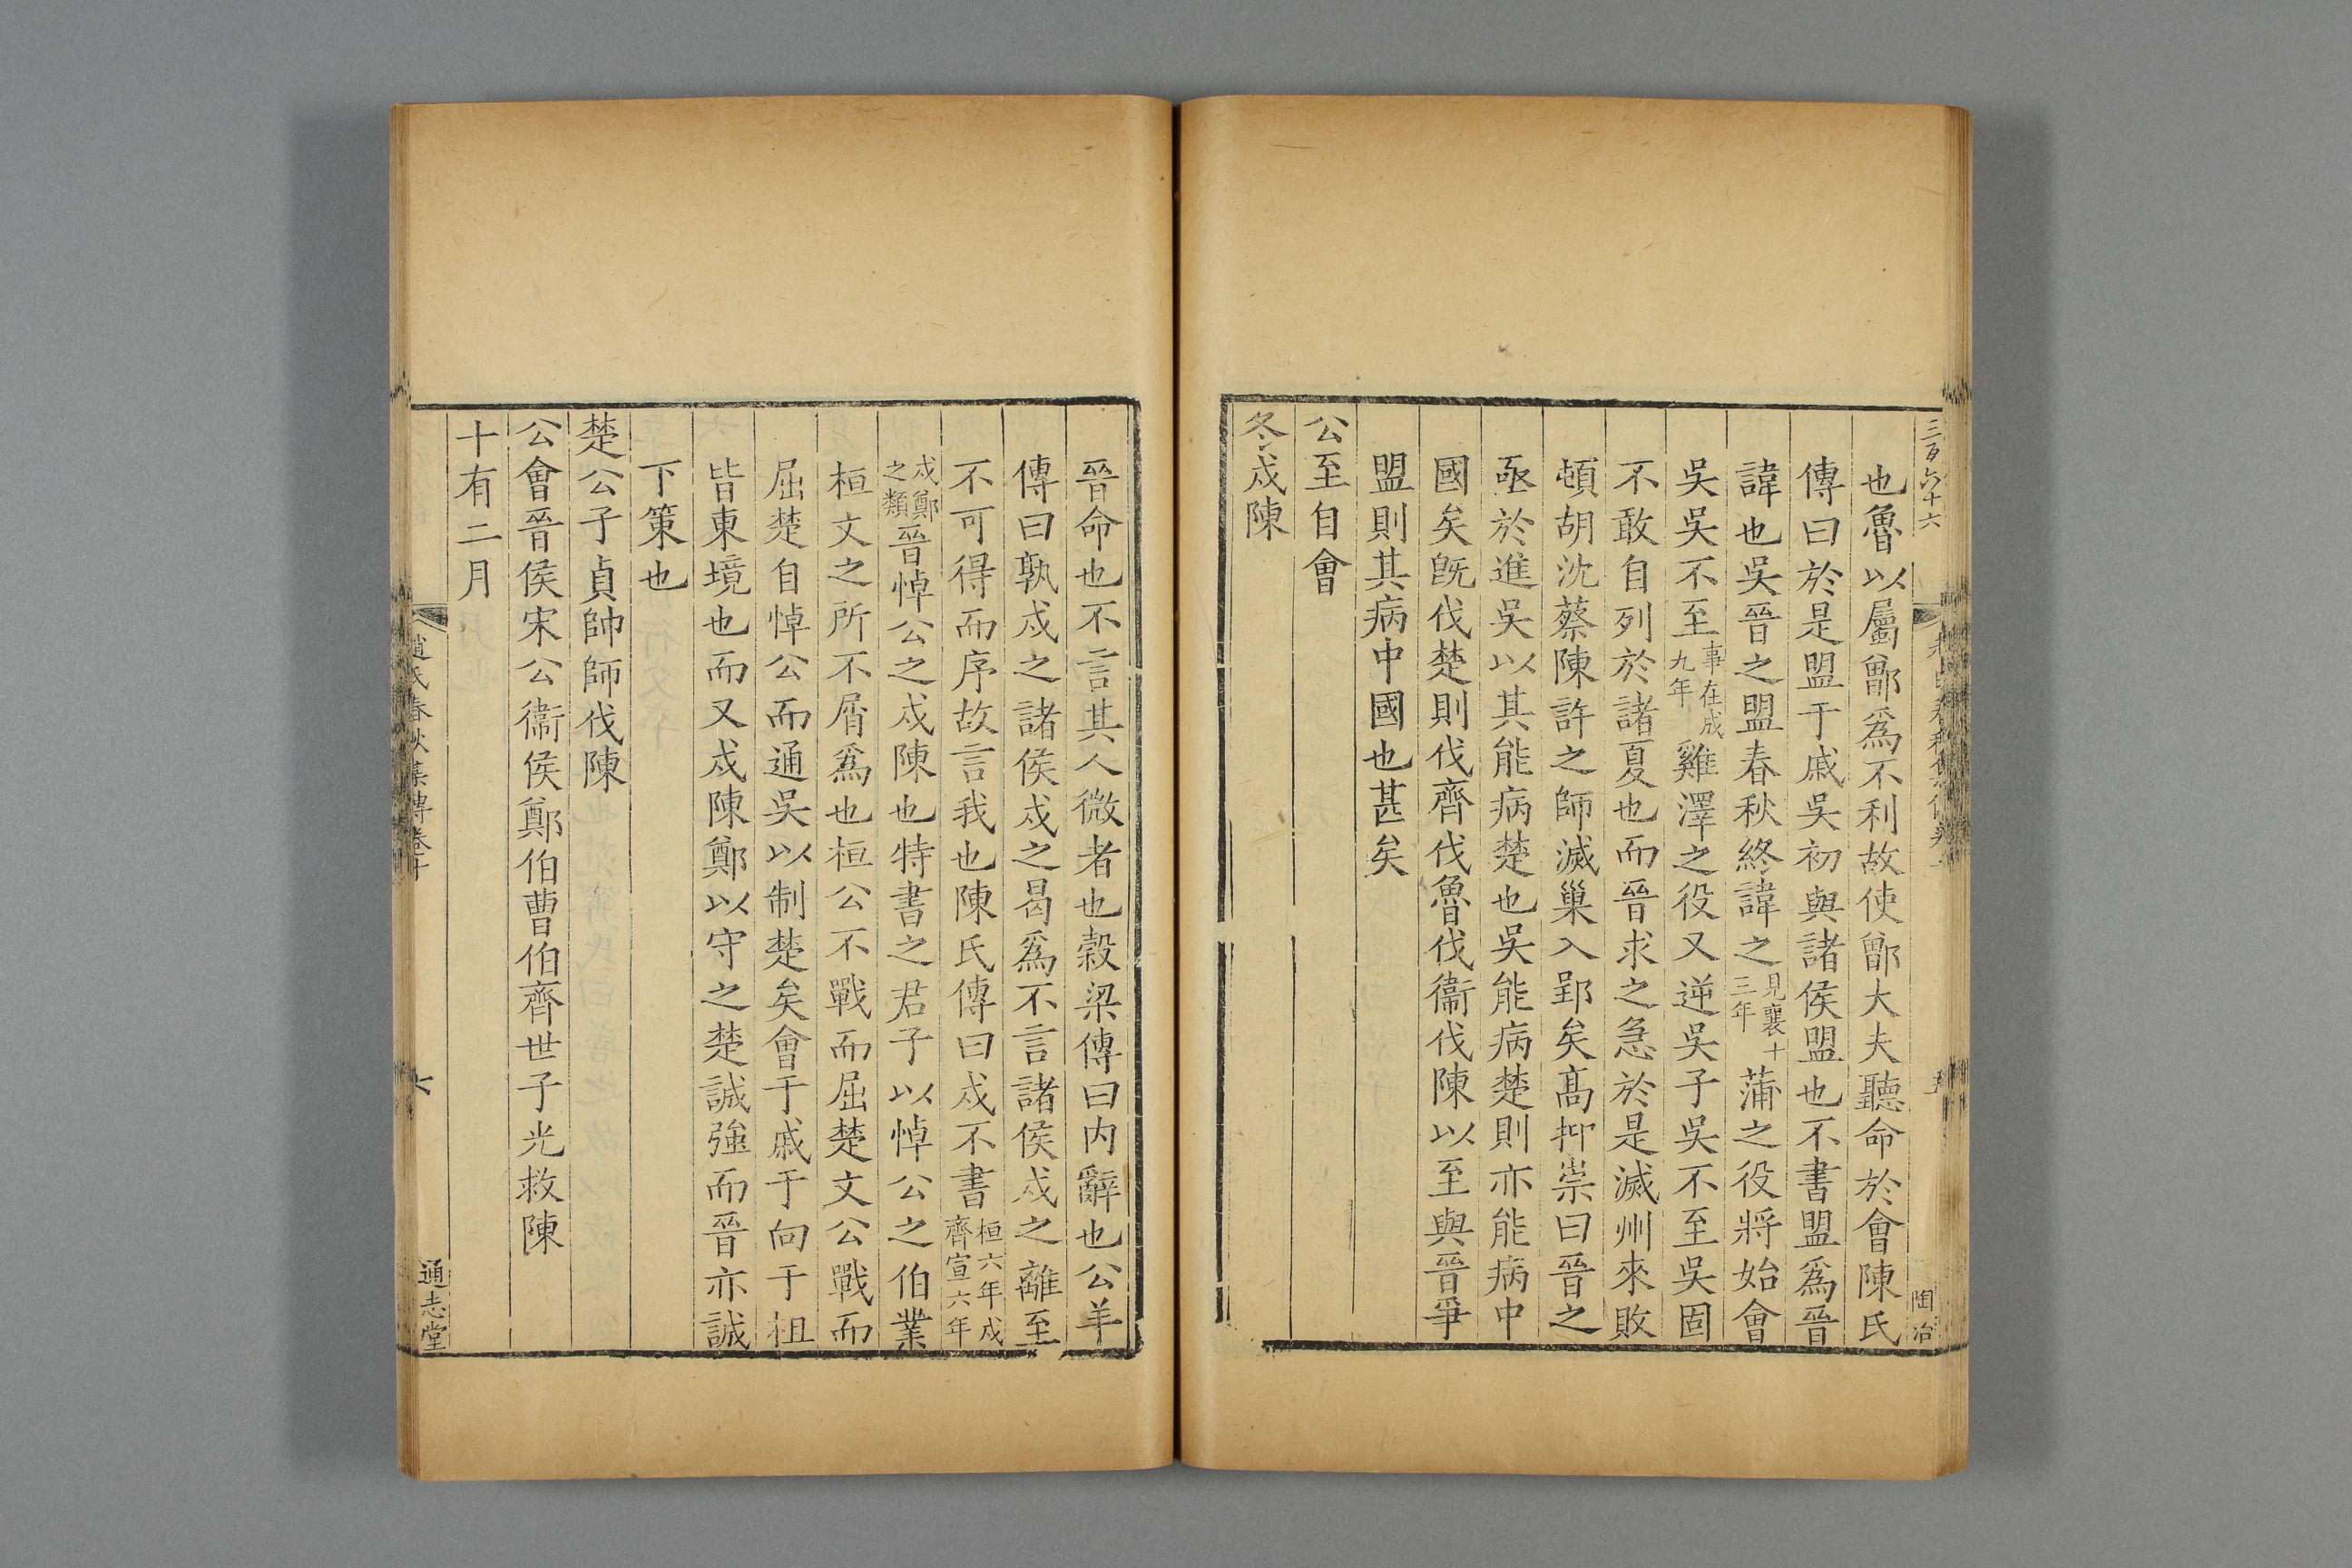 三百六十六
也魯以屬鄫爲不利故使鄫大夫聽命於會陳氏
傳曰於是盟于戚吳初與諸侯盟也不書盟爲晉
諱也吳晉之盟春秋終諱之見襄十三年蒲之役將始會
吳吳不至事在成九年雞澤之役又逆吳子吳不至吳固
不敢自列於諸夏也而晉求之急於是滅州來敗
頓胡沈蔡陳許之師滅巢入郢矣髙抑崇曰晉之
亟於進吳以其能病楚也吳能病楚則亦能病中
國矣旣伐楚則伐齊伐魯伐衞伐陳以至與晉爭
盟則其病中國也甚矣
公至自會
冬戍陳
陶冶
晉命也不言其人微者也榖梁傳曰内辭也公羊
傳曰孰戍之諸侯戍之曷爲不言諸侯戍之離至
不可得而序故言我也陳氏傳曰戍不書桓六年戍齊宣六年
戍鄭之類晉悼公之戍陳也特書之君子以悼公之伯業
桓文之所不屑爲也桓公不戰而屈楚文公戰而
屈楚自悼公而通吳以制楚矣會于戚于向于柤
皆東境也而又戍陳鄭以守之楚誠強而晉亦誠
下策也
楚公子貞帥師伐陳
公會晉侯宋公衞侯鄭伯曹伯齊世子光救陳
十有二月
趙氏春秋集傳卷十
六
通志堂